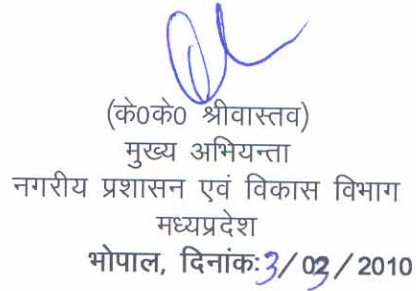 (के0के0 श्रीवास्तव)
मुख्य अभियन्ता
नगरीय प्रशासन एवं विकास विभाग
मध्यप्रदेश
भोपाल, दिनांक: 3/03/2010